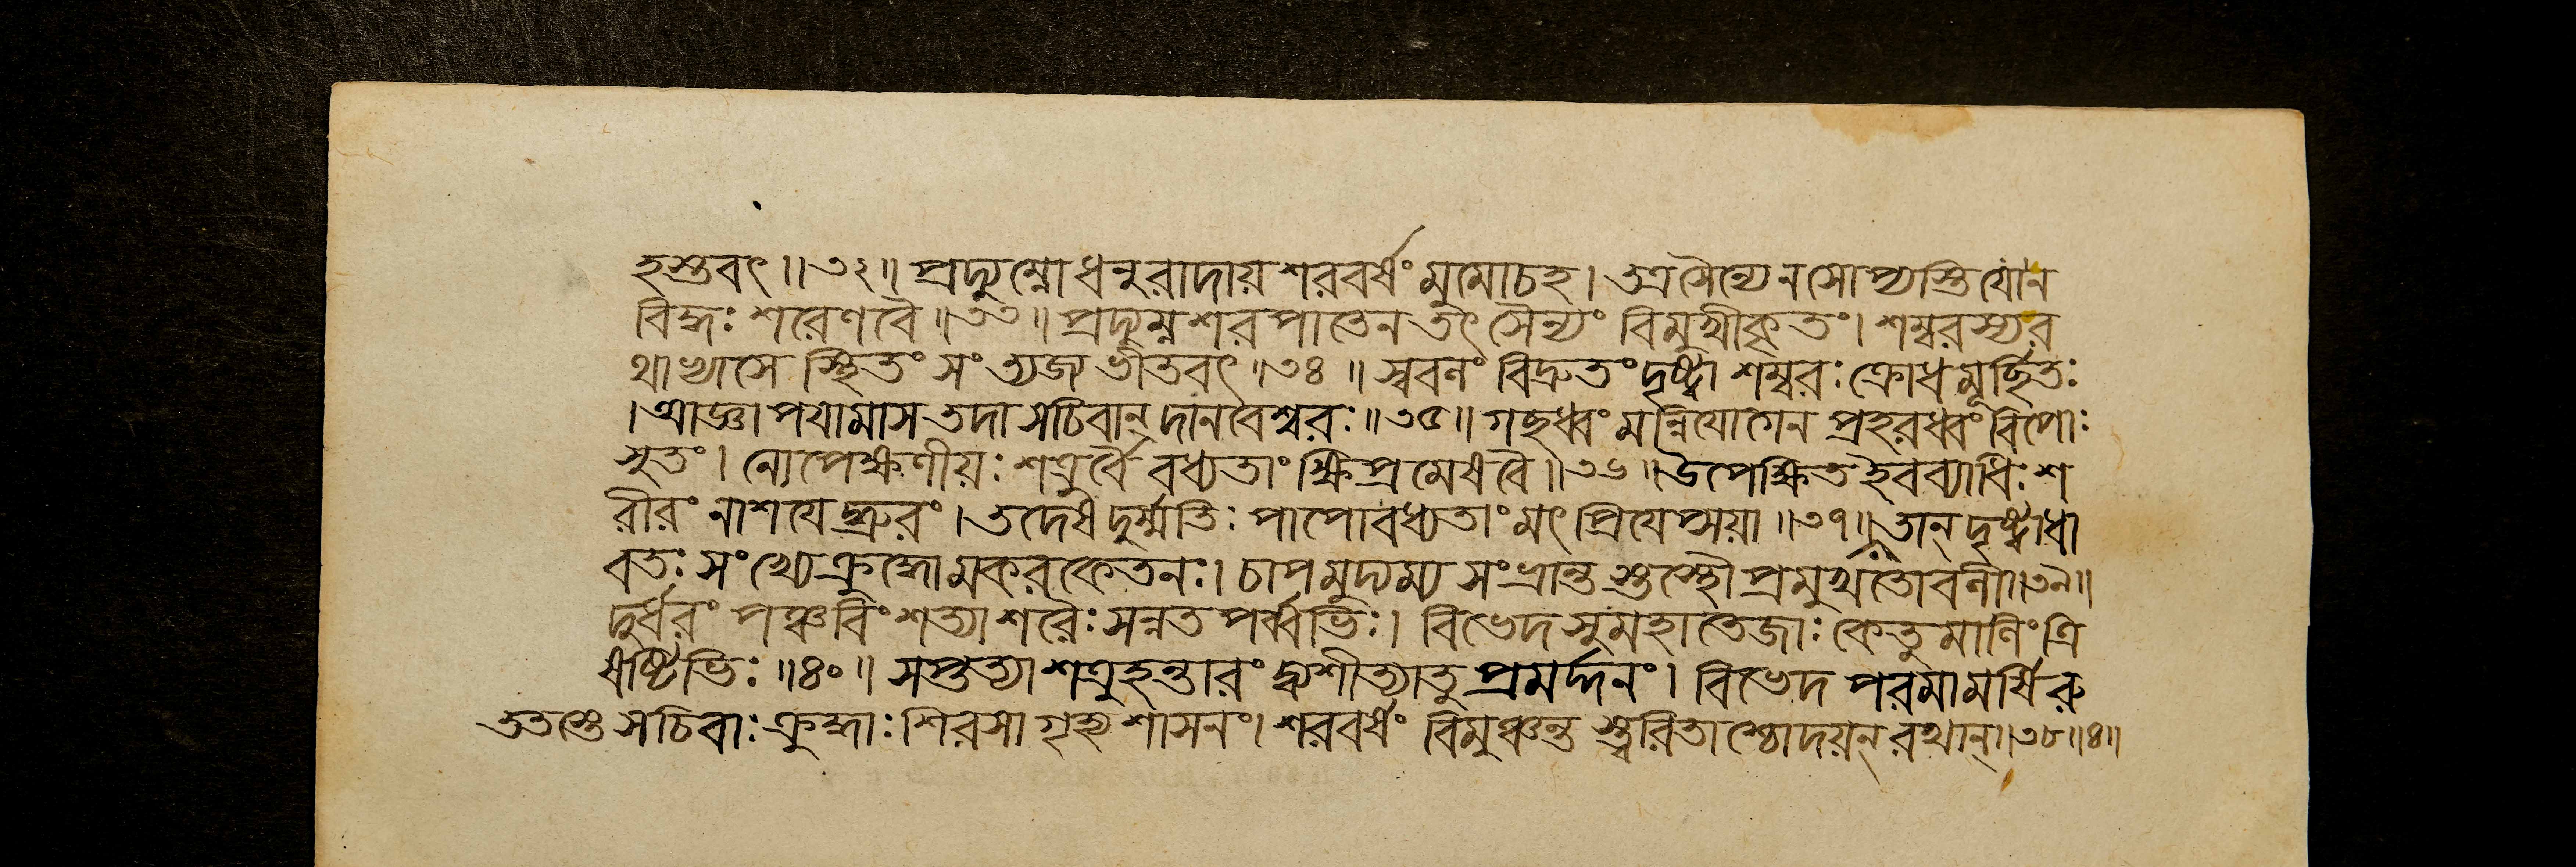 হস্তবৎ ॥৩২॥ প্রদ্যুম্নো ধনুরাদায় শরবর্ষং মুমোচহ। তত্রসৈন্যেনসোপ্যস্তি যোন
বিদ্ধঃ শরেণবৈ ॥৩৩॥ প্রদ্যুম্নশরপাতেন তৎ সৈন্যং বিমুখীকৃতং। শম্বরস্যর
থাখ্যাসে স্থিতং সংত্যজ্য ভীতবৎ ॥৩৪॥ স্ববলং বিদ্রুতং দৃষ্ট্বা শম্বরঃ ক্রোধমূর্ছিতঃ
। আজ্ঞাপযামাস তদা সচিবান্ দানবেশ্বরঃ ॥৩৫॥ গছধ্বং মন্নিযোগেন প্রহরধ্বং রিপোঃ
সুতং। নোপেক্ষণীয়ঃ শত্রুর্বৈ বধ্যতাং ক্ষিপ্রমেষবৈ ॥৩৬॥ উপেক্ষিতইবব্যাধিঃ শ
রীরং নাশযেদ্ধ্রুবং। তদেষ দুর্ম্মতিঃ পাপো বধ্যতাং মৎপ্রিযেপ্সয়া ॥৩৭॥ তান্ দৃষ্ট্বাধা
বতঃ সংখ্যে ক্রুদ্ধোমকরকেতনঃ। চাপমুদ্যম্য সংভ্রান্তস্তস্থৌ প্রমুখতোবলী ॥৩৯॥
দুর্ধরং পঞ্চবিংশত্যা শরৈঃ সন্নতপর্ব্বভিঃ। বিভেদ সুমহাতেজাঃ কেতুমালিং ত্রি
ষষ্টিভিঃ ॥৪০॥ সপ্তত্যা শত্রুহন্তারং দ্ব্যশীত্যাতু প্রমর্দ্দনং। বিভেদ পরমামর্ষি রু
ততস্তে সচিবাঃ ক্রুদ্ধাঃ শিরসা গৃহ্য শাসনং। শরবর্ষং বিমুঞ্চন্ত স্ত্বরিতাশ্চোদয়ন্ রথান্ ॥৩৮॥৪॥